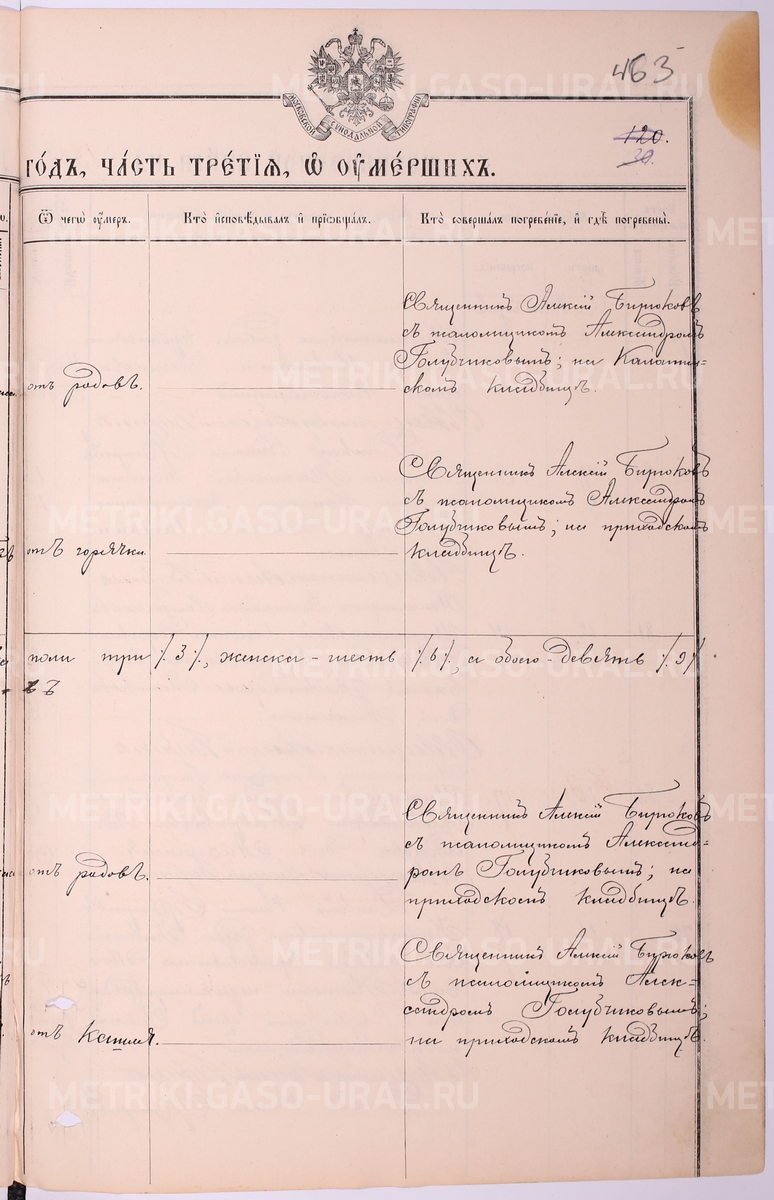 463
МОСКОВСКОЙ СѴНОДАЛЬНОЙ ТИПОГРАФІИ
120.
30.
го́дъ, ча́сть тре́тїѧ, ѡ҆ ᲂу҆ме́ршихъ.
Ѿ чегѡ̀ ᲂу҆́меръ.
Кто̀ и҆сповѣ́дывалъ и҆ прїѡбща́лъ.
Кто̀ соверша́лъ погребе́нїе, и҆ гдѣ̀ погребены̀.
Священникъ Алексій Бирюковъ
съ псаломщикомъ Александромъ
Голубчиковымъ; на
скомъ кладбищѣ.
отъ родовъ.
Священникъ Алексій Бирюковъ
съ псаломщикомъ Александромъ
Голубчиковымъ; на приходскомъ
кладбищѣ.
отъ горячки.
пола три /.3/., женска - шесть /.6/., а обоего - девять /.9/.
Священникъ Алексій Бирюковъ
съ псаломщикомъ Александ-
ромъ Голубчиковымъ; на
приходскомъ кладбищѣ.
отъ родовъ.
Священникъ Алексій Бирюковъ
съ псаломщикомъ Алек-
сандромъ Голубчиковымъ;
на приходскомъ кладбищѣ.
отъ кашля.
METRIKI.GASO-URAL.RU